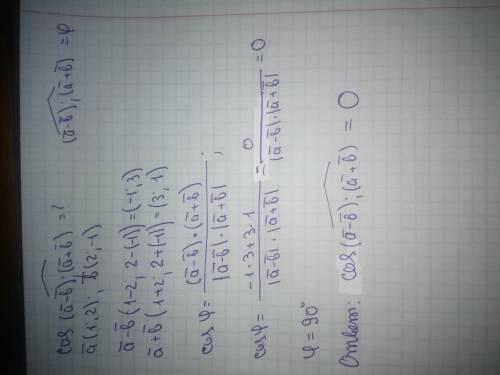 cos (a̅-b̅)^;(a̅+b̅) = ?   (a̅-b̅)^;(a̅+b̅) = φ
a̅(1;2); b̅(2;-1)
a̅-b̅ (1-2; 2-(-1)) = (-1; 3)
a̅+b̅ (1+2; 2+(-1)) = (3; 1)
cos φ = (a̅-b̅)·(a̅+b̅) / |a̅-b̅|·|a̅+b̅| ;
cos φ = -1·3+3·1 / |a̅-b̅|·|a̅+b̅| = 0 / |a̅-b̅|·|a̅+b̅| = 0
φ = 90°
Ответ: cos (a̅-b̅)^;(a̅+b̅) = 0